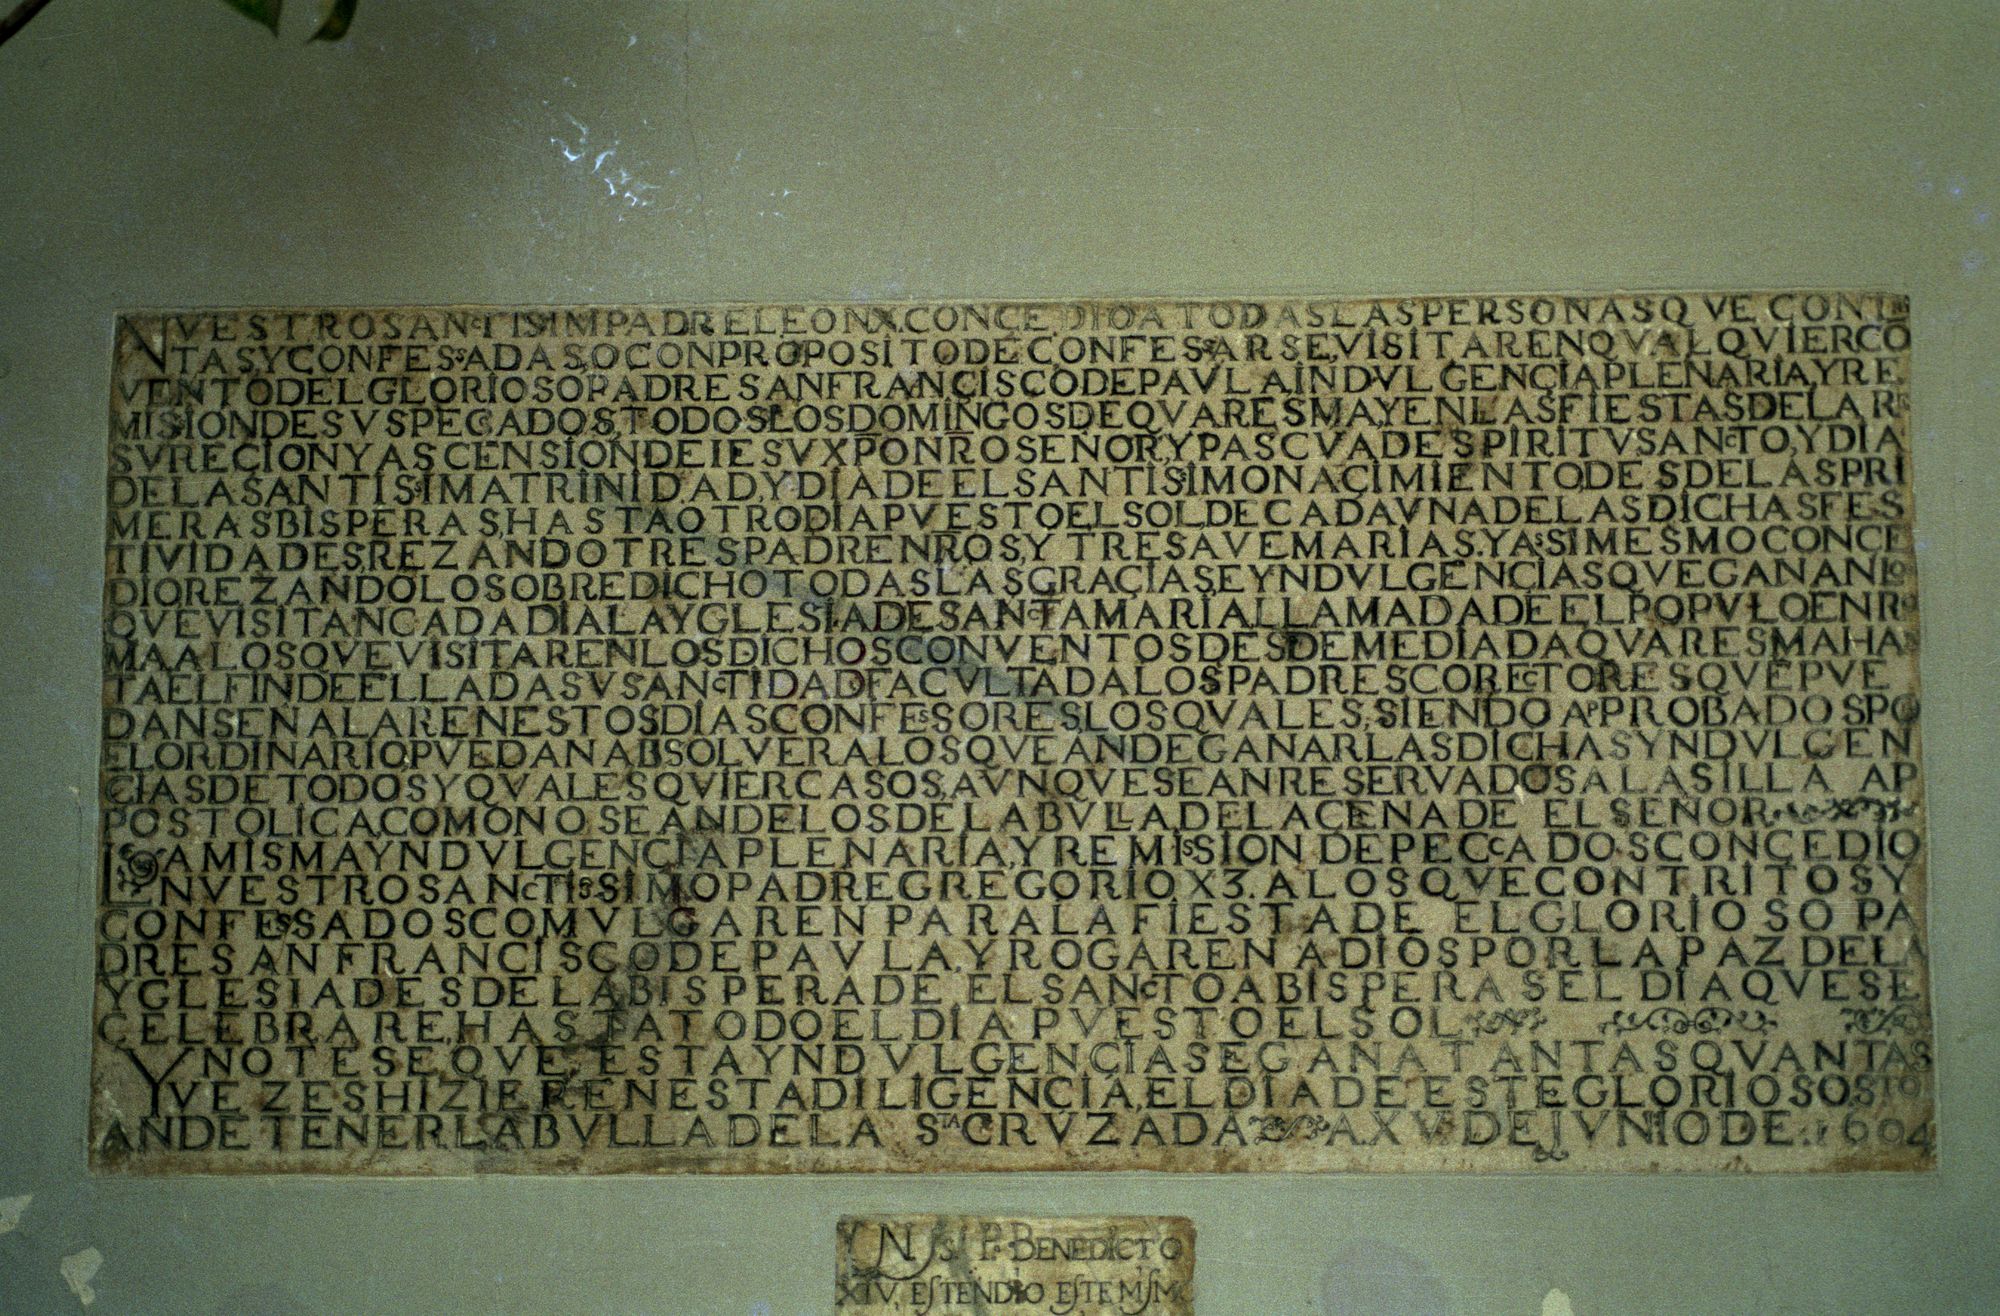 NVESTRO SANCTISSIM PADRE LEON X. CONCEDIO A TODAS LAS PERSONAS QVE CONTRI
TAS, Y CONFESSADAS, O CON PROPOSITO DE CONFESSARSE, VISITAREN QVALQVIER CO
VENTO DEL GLORIOSO PADRE SAN FRANCISCO DE PAVLA INDVLGENCIA PLENARIA, Y RE
MISIÓN DE SVS PECADOS, TODOS LOS DOMINGOS DE QVARESMA, Y EN LAS FIESTAS DE LA RE
SVRECIÓN Y ASCENSIÓN DE IESV XPO NRO SEÑOR, Y PASCVA DE SPIRITV SANCTO, Y DIA
DE LA SANTISSIMA TRINIDAD, Y DIA DE EL SANTISSIMO NACIMIENTO, DESDE LAS PRI
MERAS BISPERAS, HASTA OTRO DIA PVESTO EL SOL, DE CADA VNA DE LAS DICHAS FES
TIVIDADES, REZANDO TRES PADRE NROS, Y TRES AVE MARIAS. Y ASSI MESMO CONCE
DIO REZANDO LO SOBREDICHO TODAS LAS GRACIAS E YNDVLGENCIAS QVE GANAN LOS
QVE VISITAN CADA DIA LA YGLESIA DE SANCTA MARIA LLAMADA DE EL POPVLO EN RO
MA A LOS QVE VISITAREN LOS DICHOS CONVENTOS DESDE MEDIADA QVARESMA HAS
TA EL FIN DE ELLA DA SV SANCTIDAD FACVLTAD A LOS PADRES CORECTORES QVE PVE
DAN SEÑALAR EN ESTOS DIAS CONFESSORES, LOS QVALES, SIENDO APPROBADOS POR
EL ORDINARIO, PVEDAN ABSOLVER A LOS QVE AN DE GANAR LAS DICHAS YNDVLGEN
CIAS DE TODOS Y QVALESQVIER CASOS, AVNQVE SEAN RESERVADOS A LA SILLA AP
POSTOLICA, COMO NO SEAN DE LOS DE LA BVLLA, DE LA CENA DE EL SEÑOR
LA MISMA YNDVLGENCIA PLENARIA, Y REMISSION DE PECCADOS CONCEDIO
NVESTRO SANCTISSIMO PADRE GREGORIO X3. A LOS QVE CONTRITOS Y
CONFESSADOS COMVLGAREN PARA LA FIESTA DE EL GLORIOSO PA
DRE SAN FRANCISCO DE PAVLA, Y ROGAREN A DIOS POR LA PAZ DE LA
YGLESIA DESDE LA BISPERA DE EL SANCTO A BISPERAS EL DIA QVE SE
CELEBRARE, HASTA TODO EL DIA PVESTO EL SOL
Y NOTESE QVE ESTA YNDVLGENCIA SE GANA TANTAS QVANTAS
VEZES HIZIEREN ESTA DILIGENCIA, EL DIA DE ESTE GLORIOSO STO
AN DE TENER LA BVLLA DE LA STA CRVZADA A XV DE JVNIO DE 1604
Y N. Ss. P. BENEDICTO
XIV, ESTENDIO ESTE MISM